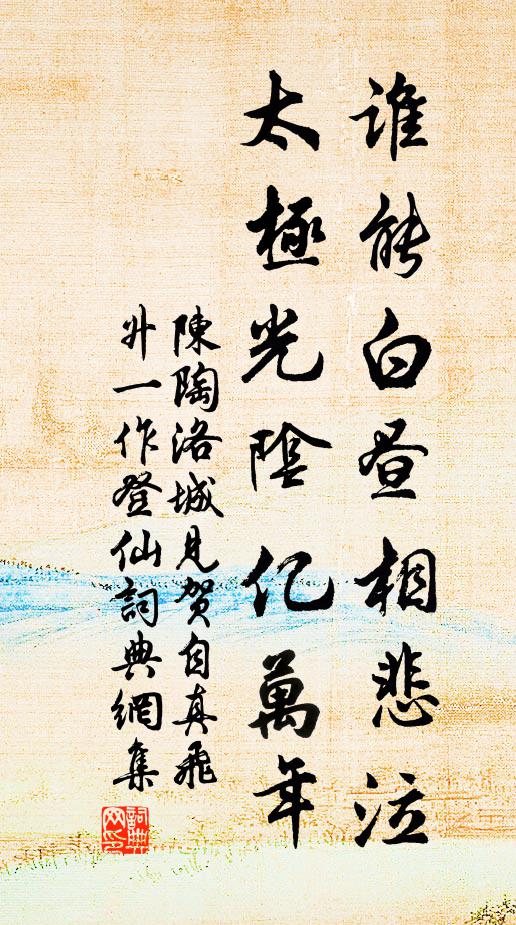 谁能白昼相悲泣
太極光陰亿萬年
陳陶洛城見贺自真飛
升一作登仙詞典網集
詞典
网印